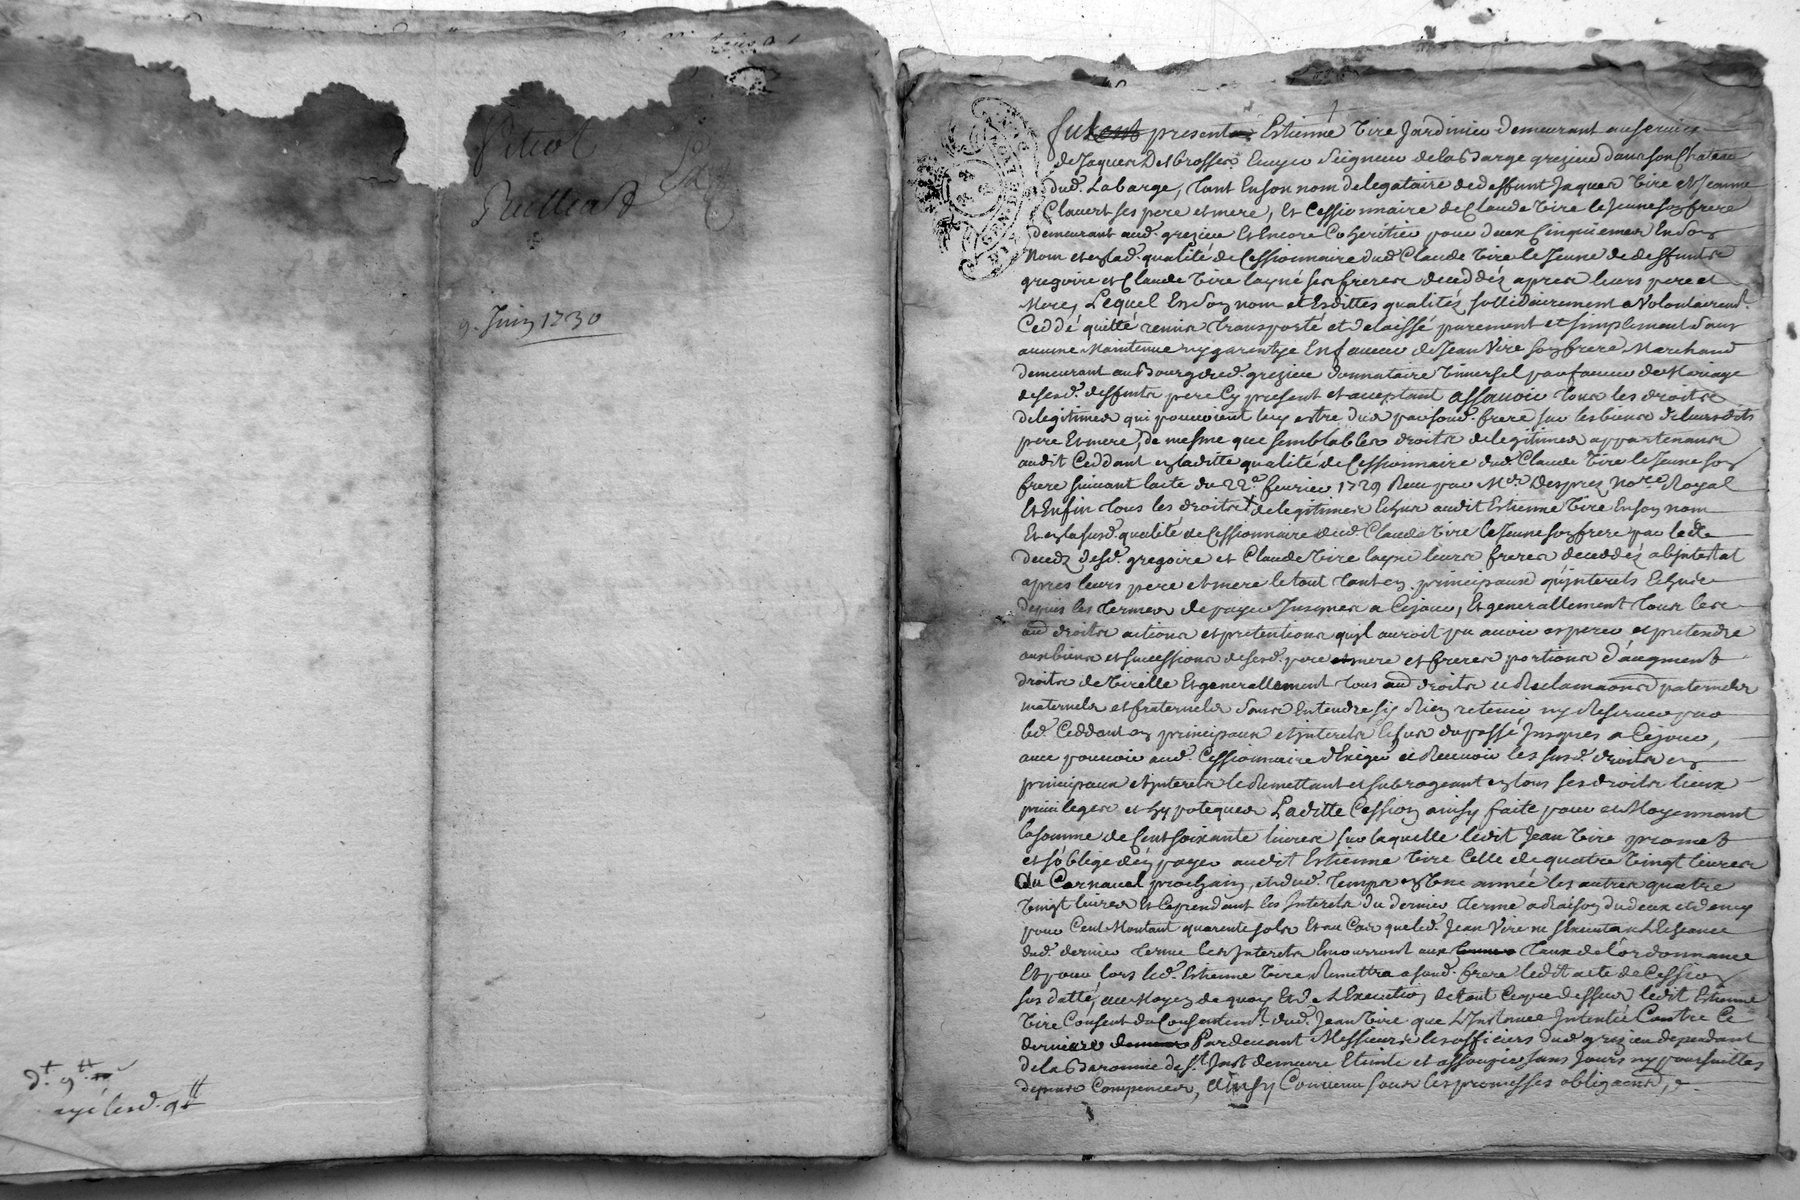 9. Juin 1730
dt 9tt
payé lesd. 9tt
fut present Estienne Vire Jardinier demeurant au service
de Jaques Desbrosses Ecuyer Seigneur de la Barge grezieu dans son Chateau
dud. Labarge, tant en son nom de legataire de deffunt Jaques Vire et Jeanne
Clavert ses pere et mere, et Cessionnaire de Claude Vire le Jeune son frere
demeurant aud. grezieu et encore Coheritier pour deux Cinquiemes en son
Nom et en lad. qualité de Cessionnaire dud Claude Vire le Jeune de deffunts
gregoire et Claude Vire layné ses freres deceddéz apres leurs pere et
Mere, Lequel en son nom et esdittes qualités sollidairement a Volontairemt.
Ceddé quitté remis transporté et delaissé purement et simplement sans
aucune Maintenue ny garentye En faveur de Jean Vire son frere Marchand
demeurant au Bourg dud. grezieu donnataire Vniversel par faveur de Mariage
desesd. deffunts pere Cy present et acceptant assavoir tous les droits
de legitimes qui pouvoient luy estre dus par sond. frere sur les biens de leursdits
pere et mere, de mesme que semblables droits de legitimes appartenans
audit Ceddant en laditte qualité de Cessionnaire dud. Claude Vire le Jeune son
frere suivant lacte du 22e. fevrier 1729 Receu par Mtr Desprez Nore. Royal
Et Enfin tous les droits de legitimes Echus audit Estienne Vire en son nom
Et en la susd. qualité de Cessionnaire dud. Claude Vire le Jeune son frere par le de
deceds desd. gregoire et Claude Vire layné leurs freres deceddéz abjntestat
apres leurs pere et mere le tout tant en principaux qu'jnterets Echus
depuis les termes de payer Jusques a Cejour, Et generallement tous les
au droits actions et pretentions qu'jl auroit pu avoir esperer et pretendre
aux biens et successions desesd. pere et mere et freres portions d'augment
droits de Virille Et generallement tous au droits et Reclamaons paternels
maternels et fraternels sans en entendre Rien retenir ny Reserver par
led. Ceddant en principaux et jnterets Echus du passé Jusques a Cejour,
avec pouvoir aud. Cessionnaire d'Exiger et Recevoir les susd. droits en
principaux et jnterets le Remettant et subrogeant en tous ses droits lieux
privileges et hypoteques Laditte Cession ainsy faite pour et Moyennant
la somme de Cent soixante livres sur laquelle ledit Jean Vire promet
et s'oblige d'en payer audit Estienne Vire Celle de quatre Vingt livres
Au Carnaval prochain, et dud. temps en Vne année les autres quatre
Vingt livres Et Cependant les Interets du dernier terme a Raison du deux et demy
pour Cent Montant quarente sols Et au Cas que led. Jean Vire ne
dud. dernier terme les Jnterets Encourront aux taux de l'ordonnance
Et pour lors led. Estienne Vire Remettra a sond. frere ledit acte de Cession
sus datté, au Moyen de quoy Et de L'Execution de tout Ceque dessus, ledit Estienne
Vire Consent du Consentemt. dud. Jean Vire que L'Instance Intentée Contre Ce
dernier Pardevant Messieurs les officiers dud grezieu dependant
de la Baronnie de St. Just demeure Eteinte et assoupie sans Jours ny poursuittes
depens Compensés, Ainsy Convenu sous les promesses obligaons, &